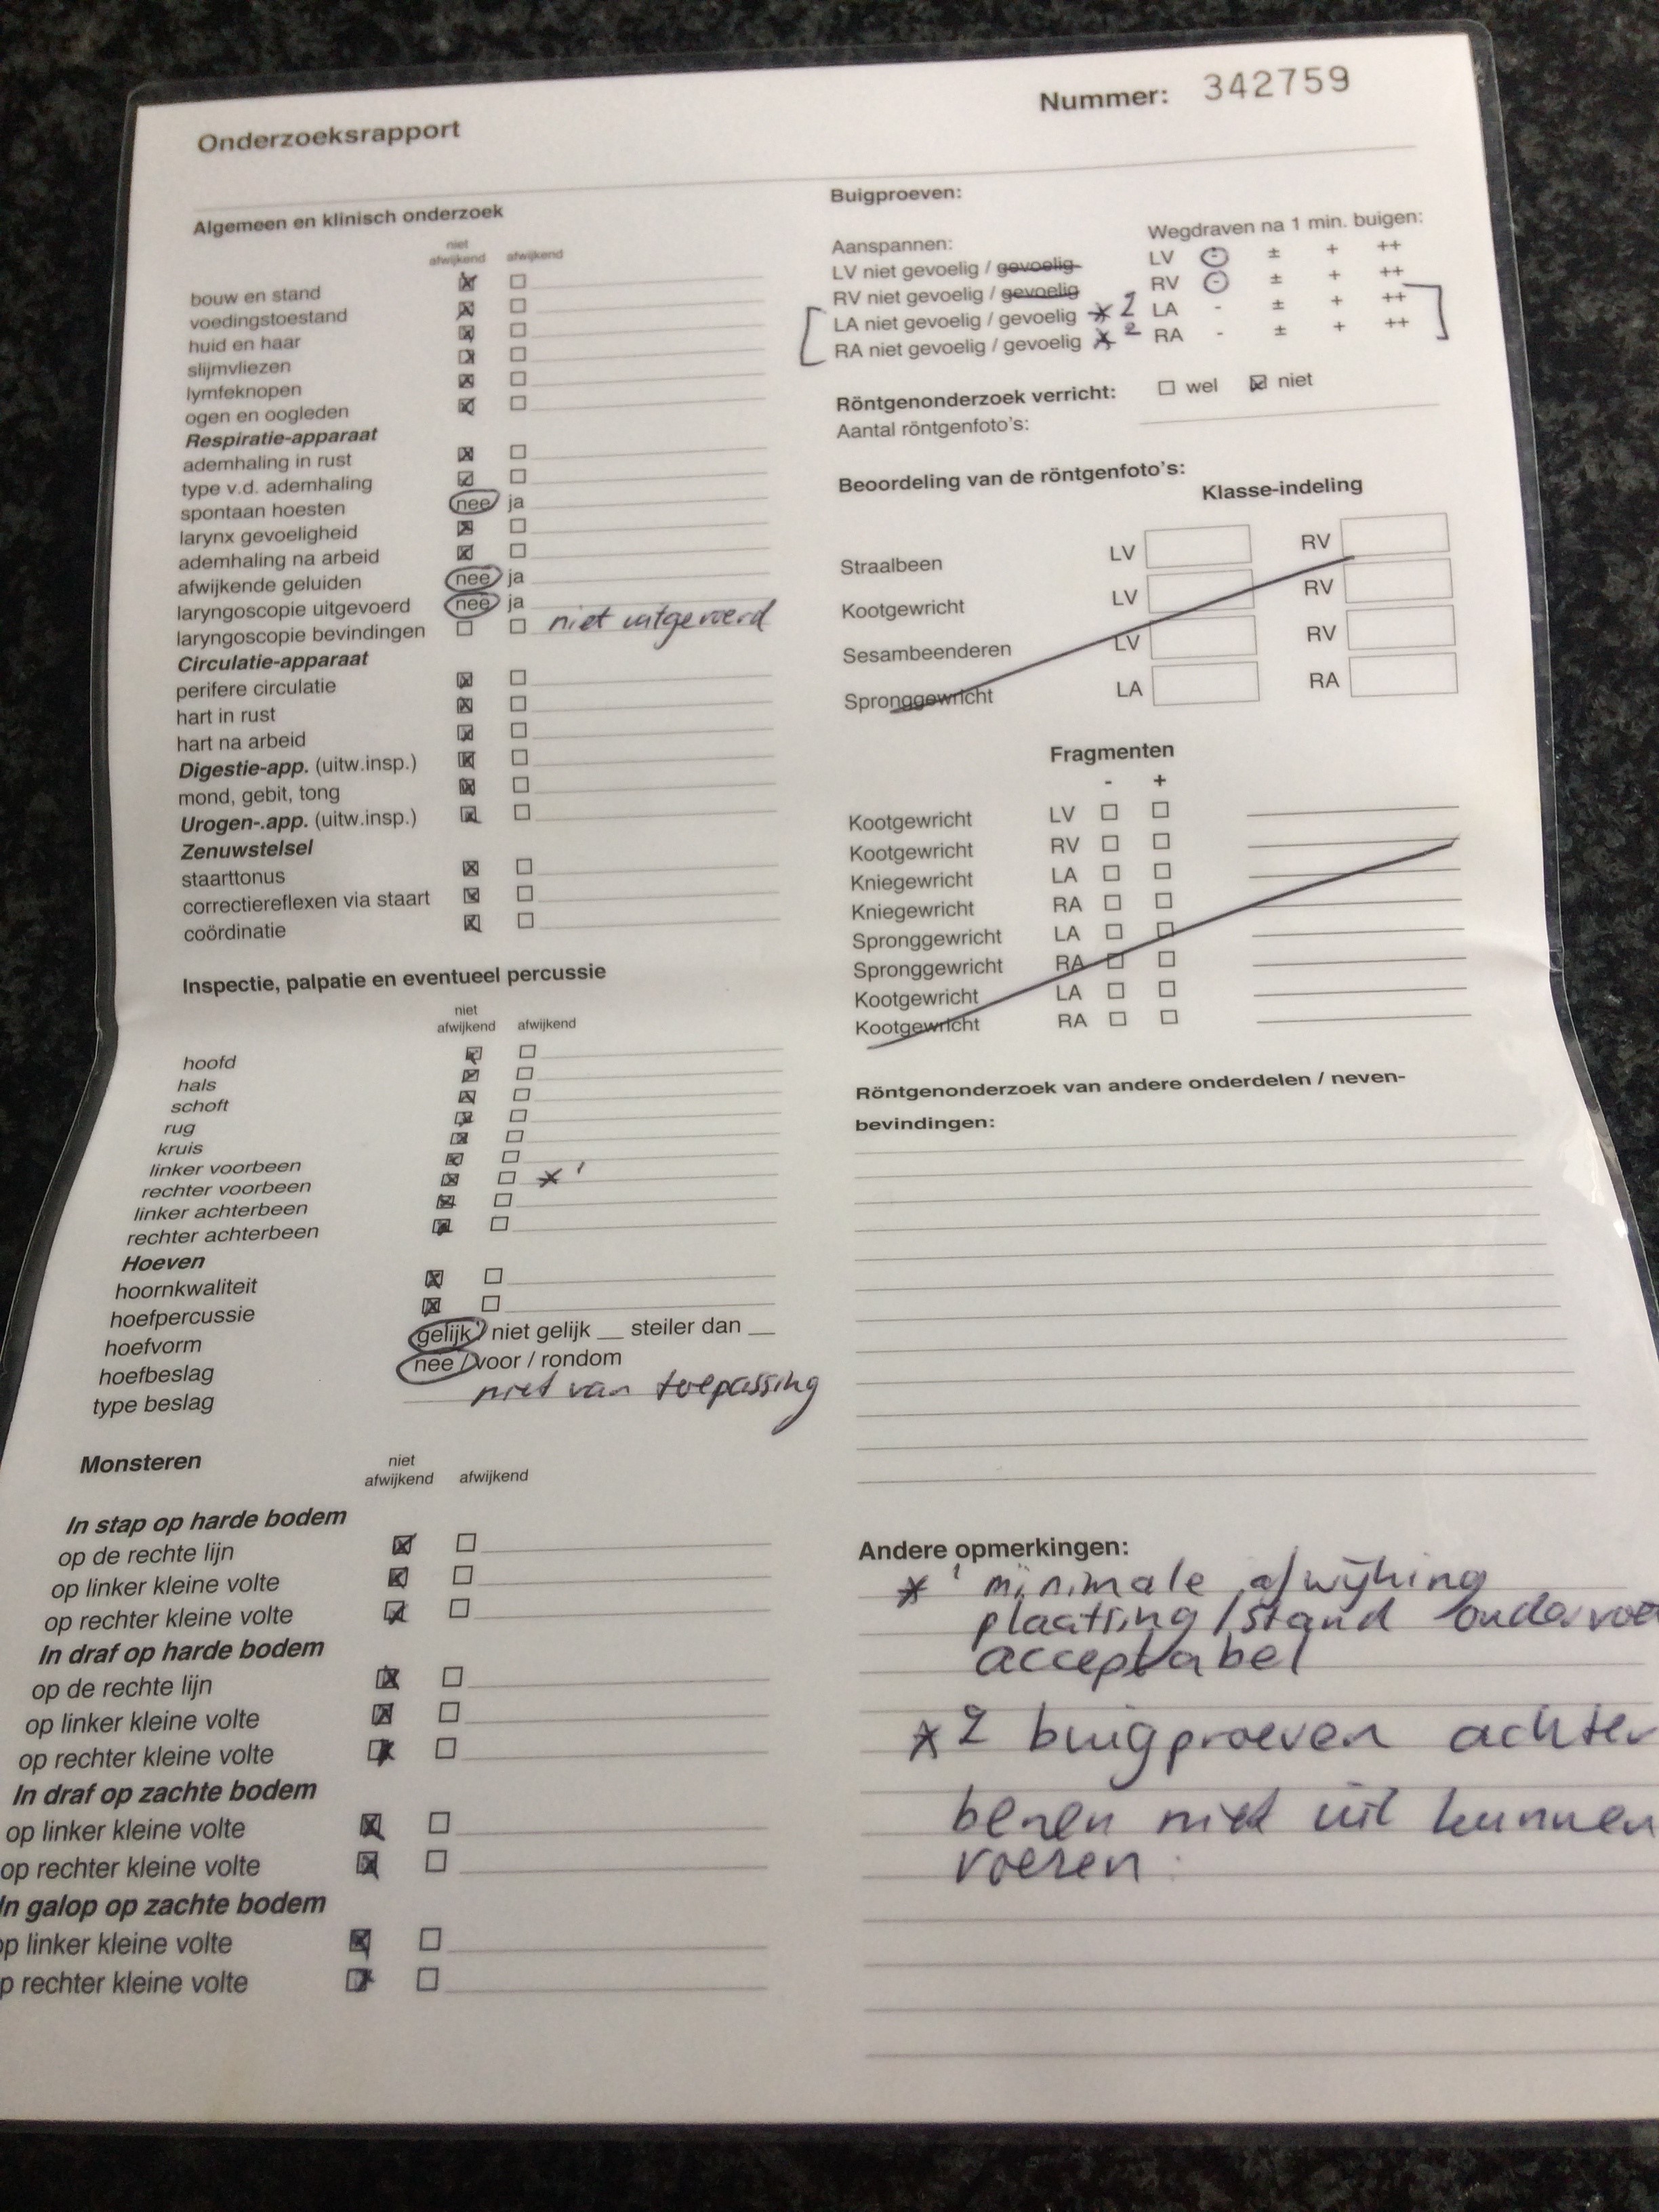 Nummer: 342759
Onderzoeksrapport
Algemeen en klinisch onderzoek
niet afwijkend afwijkend
bouw en stand
voedingstoestand
huid en haar
slijmvliezen
lymfeknopen
ogen en oogleden
Respiratie-apparaat
ademhaling in rust
type v.d. ademhaling
spontaan hoesten nee ja
larynx gevoeligheid
ademhaling na arbeid
afwijkende geluiden nee ja
laryngoscopie uitgevoerd nee ja
laryngoscopie bevindingen niet uitgevoerd
Circulatie-apparaat
perifere circulatie
hart in rust
hart na arbeid
Digestie-app. (uitw.insp.)
mond, gebit, tong
Urogen-.app. (uitw.insp.)
Zenuwstelsel
staarttonus
correctiereflexen via staart
coördinatie
Inspectie, palpatie en eventueel percussie
niet afwijkend afwijkend
hoofd
hals
schoft
rug
kruis
linker voorbeen
rechter voorbeen * 1
linker achterbeen
rechter achterbeen
Hoeven
hoornkwaliteit
hoefpercussie
hoefvorm gelijk / niet gelijk __ steiler dan __
hoefbeslag nee / voor / rondom
type beslag niet van toepassing
Monsteren
niet afwijkend afwijkend
In stap op harde bodem
op de rechte lijn
op linker kleine volte
op rechter kleine volte
In draf op harde bodem
op de rechte lijn
op linker kleine volte
op rechter kleine volte
In draf op zachte bodem
op linker kleine volte
op rechter kleine volte
In galop op zachte bodem
op linker kleine volte
p rechter kleine volte
Buigproeven:
Aanspannen: Wegdraven na 1 min. buigen:
LV niet gevoelig / gevoelig LV - ± + ++
RV niet gevoelig / gevoelig RV - ± + ++
LA niet gevoelig / gevoelig * 2 LA - ± + ++
RA niet gevoelig / gevoelig * 2 RA - ± + ++
Röntgenonderzoek verricht: wel niet
Aantal röntgenfoto's:
Beoordeling van de röntgenfoto's:
Klasse-indeling
Straalbeen LV RV
Kootgewricht LV RV
Sesambeenderen LV RV
Spronggewricht LA RA
Fragmenten
- +
Kootgewricht LV
Kootgewricht RV
Kniegewricht LA
Kniegewricht RA
Spronggewricht LA
Spronggewricht RA
Kootgewricht LA
Kootgewricht RA
Röntgenonderzoek van andere onderdelen / neven-
bevindingen:
Andere opmerkingen:
* 1 minimale afwijking
plaatsing / stand ondervoe
acceptabel
* 2 buigproeven achter
benen niet uit kunnen
voeren.